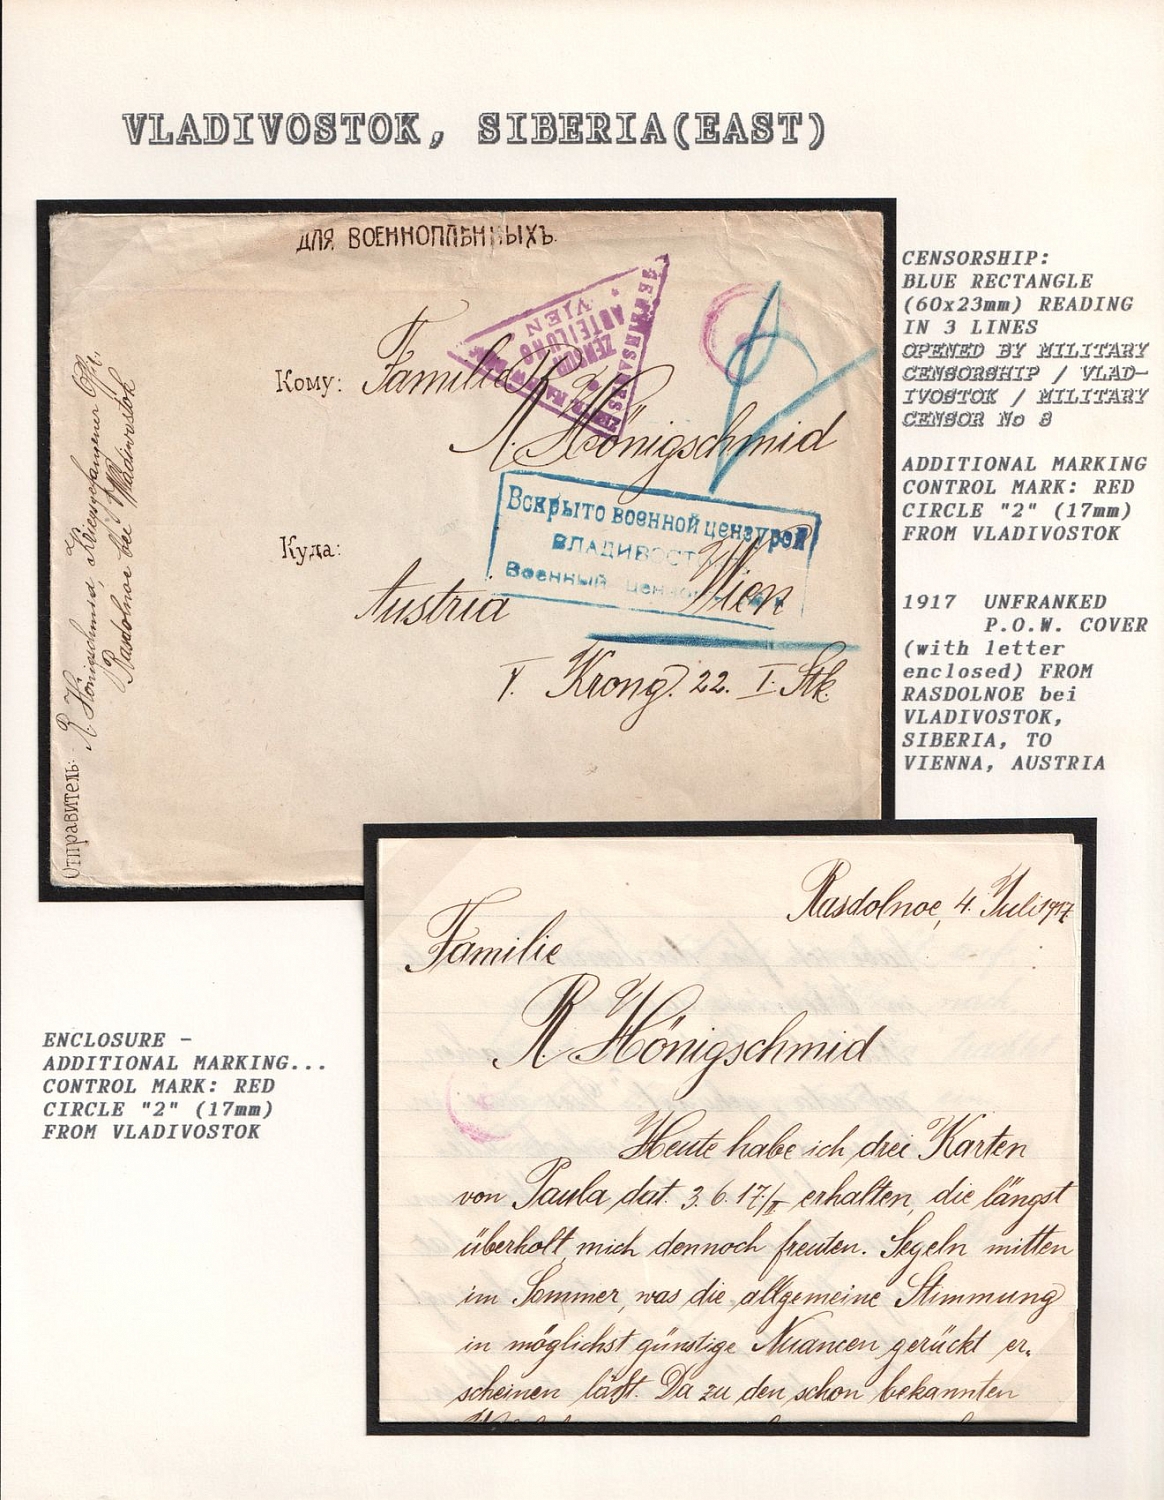 VLADIVOSTOK, SIBERIA(EAST)
ДЛЯ ВОЕННОПЛѢННЫХЪ.
Кому: Familie
R. Hönigschmid
Куда:
Austria Wien
V. Krong. 22. I. Stk.
Отправитель: R. Hönigschmid, Kriegsgefangener
Rasdolnoe bei Wladiwostok
ZENSUR
ABTEILUNG
WIEN
Вскрыто военной цензурой
ВЛАДИВОСТОК
Военный ценз
CENSORSHIP:
BLUE RECTANGLE
(60x23mm) READING
IN 3 LINES
OPENED BY MILITARY
CENSORSHIP / VLAD-
IVOSTOK / MILITARY
CENSOR No 8
ADDITIONAL MARKING
CONTROL MARK: RED
CIRCLE "2" (17mm)
FROM VLADIVOSTOK
1917 UNFRANKED
P.O.W. COVER
(with letter
enclosed) FROM
RASDOLNOE bei
VLADIVOSTOK,
SIBERIA, TO
VIENNA, AUSTRIA
ENCLOSURE -
ADDITIONAL MARKING...
CONTROL MARK: RED
CIRCLE "2" (17mm)
FROM VLADIVOSTOK
Rasdolnoe, 4. Juli 1917
Familie
R. Hönigschmid
Heute habe ich drei Karten
von Paula dat. 3. 6. 17./II erhalten, die längst
überholt, mich dennoch freuten. Segeln mitten
im Sommer, was die allgemeine Stimmung
in möglichst günstige Nuancen gerückt er-
scheinen läßt. Da zu den schon bekannten